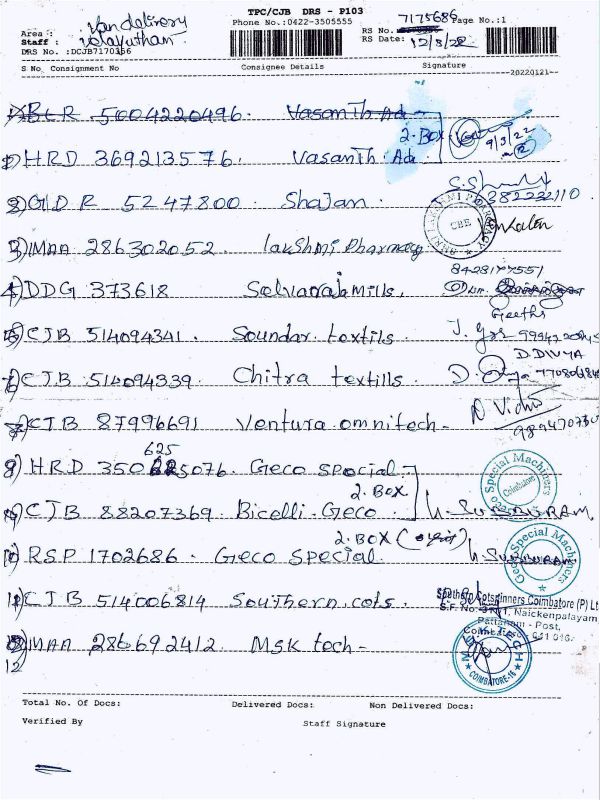 TPC/CJB DRS - P103
Phone No.:0422-3505555
Page No.:1
Area : Van delivery
Staff : Velavutham
DRS No. :DCJB7170356
RS No. 7175686
RS Date: 12/3/22
S No Consignment No Consignee Details Signature
20220121
BLR 5004220496. Vasanth Ade
2. Box
9/3/22
1) HRD 369213576. Vasanth. Ade
2) GDR 5247800 Shajan.
S.S
LAKSHMI PHARMACY
CBE
Venkalen
3) MAA 286302052. lakshmi Pharmacy
8428177551
4) DDG 373618 Selvaraja Mills.
Geetha
5) CJB 514094341. Soundar textils.
D. DIVYA
6) CJB 514094339. Chitra textills.
7) CJB 87996691 Ventura omnitech-
625
8) HRD 350 5076. Geco Special.
2. BOX
Geco Special Machiners
Coimbatore
9) CJB 88207369 Bicelli-Geco
2. BOX
10) RSP 1702686. Geco Special.
Geco Special Machiners
11) CJB 514006814 Southern. cots.
Southern Cotspinners Coimbatore (P) Lt
S.F. No. 311/1, Naickenpalayam
Pattanam - Post,
Coimbatore - 641 016.
MAA 286692412. Msk tech-
12
MSK TECH
COIMBATORE-16
Total No. Of Docs: Delivered Docs: Non Delivered Docs:
Verified By Staff Signature